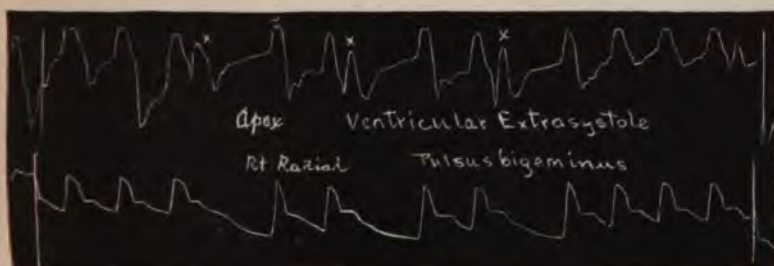 x x x
Apex Ventricular Extrasystole
Rt Radial Pulsus bigeminus